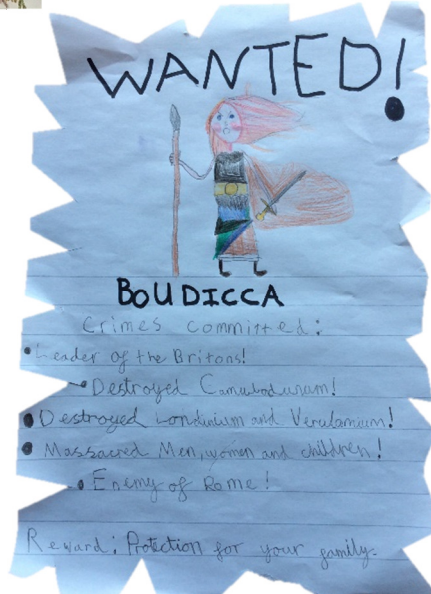 WANTED!
BOUDICCA
Crimes committed:
Leader of the Britons!
Destroyed Camulodunam!
Destroyed Londinium and Verulamium!
Massacred Men, women and children!
Enemy of Rome!
Reward: Protection for your family.